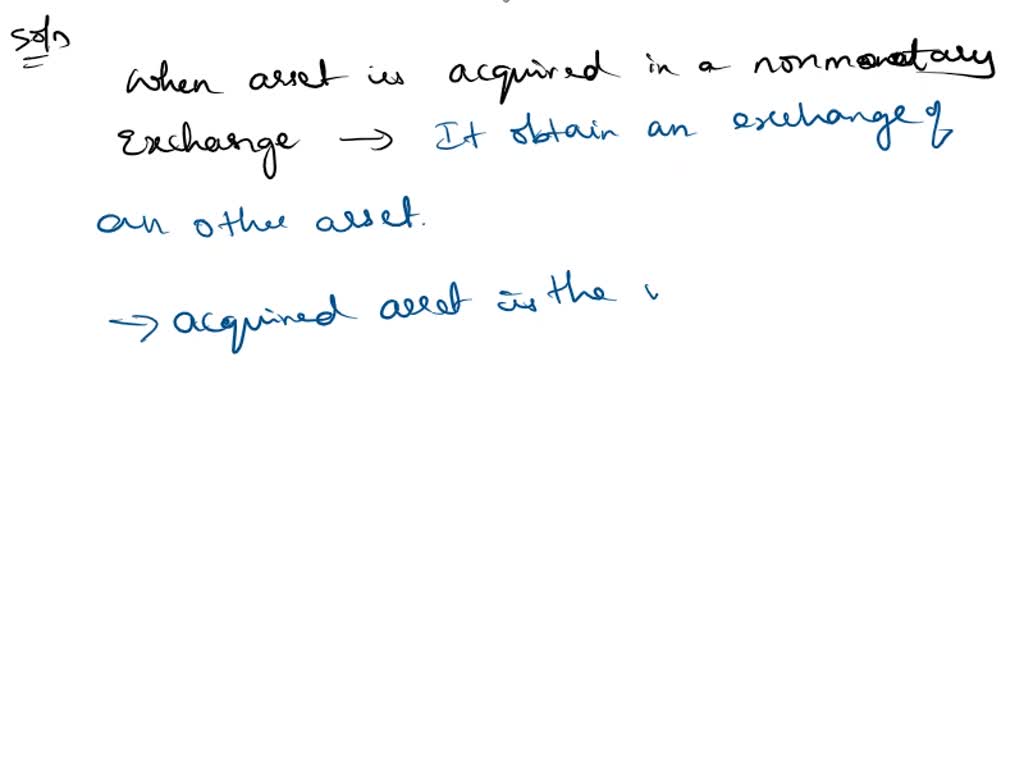 Soln
When asset is acquired in a nonmonetary
Exchange → It obtain an exchange of
an othee asset.
→ acquired asset is the